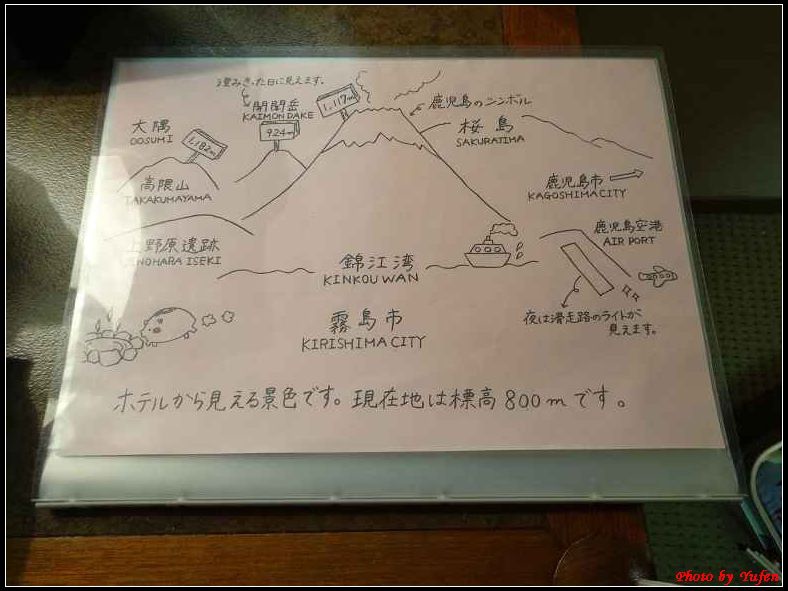 澄みきった日に見えます。
開聞岳
KAIMONDAKE
924m
1,117m
鹿児島のシンボル
桜島
SAKURAJIMA
大隅
OOSUMI
1,182m
高隈山
TAKAKUMAYAMA
鹿児島市
KAGOSHIMACITY
上野原遺跡
UENOHARA ISEKI
錦江湾
KINKOUWAN
鹿児島空港
AIR PORT
夜は滑走路のライトが
見えます。
霧島市
KIRISHIMACITY
ホテルから見える景色です。現在地は標高800mです。
Photo by Yufen